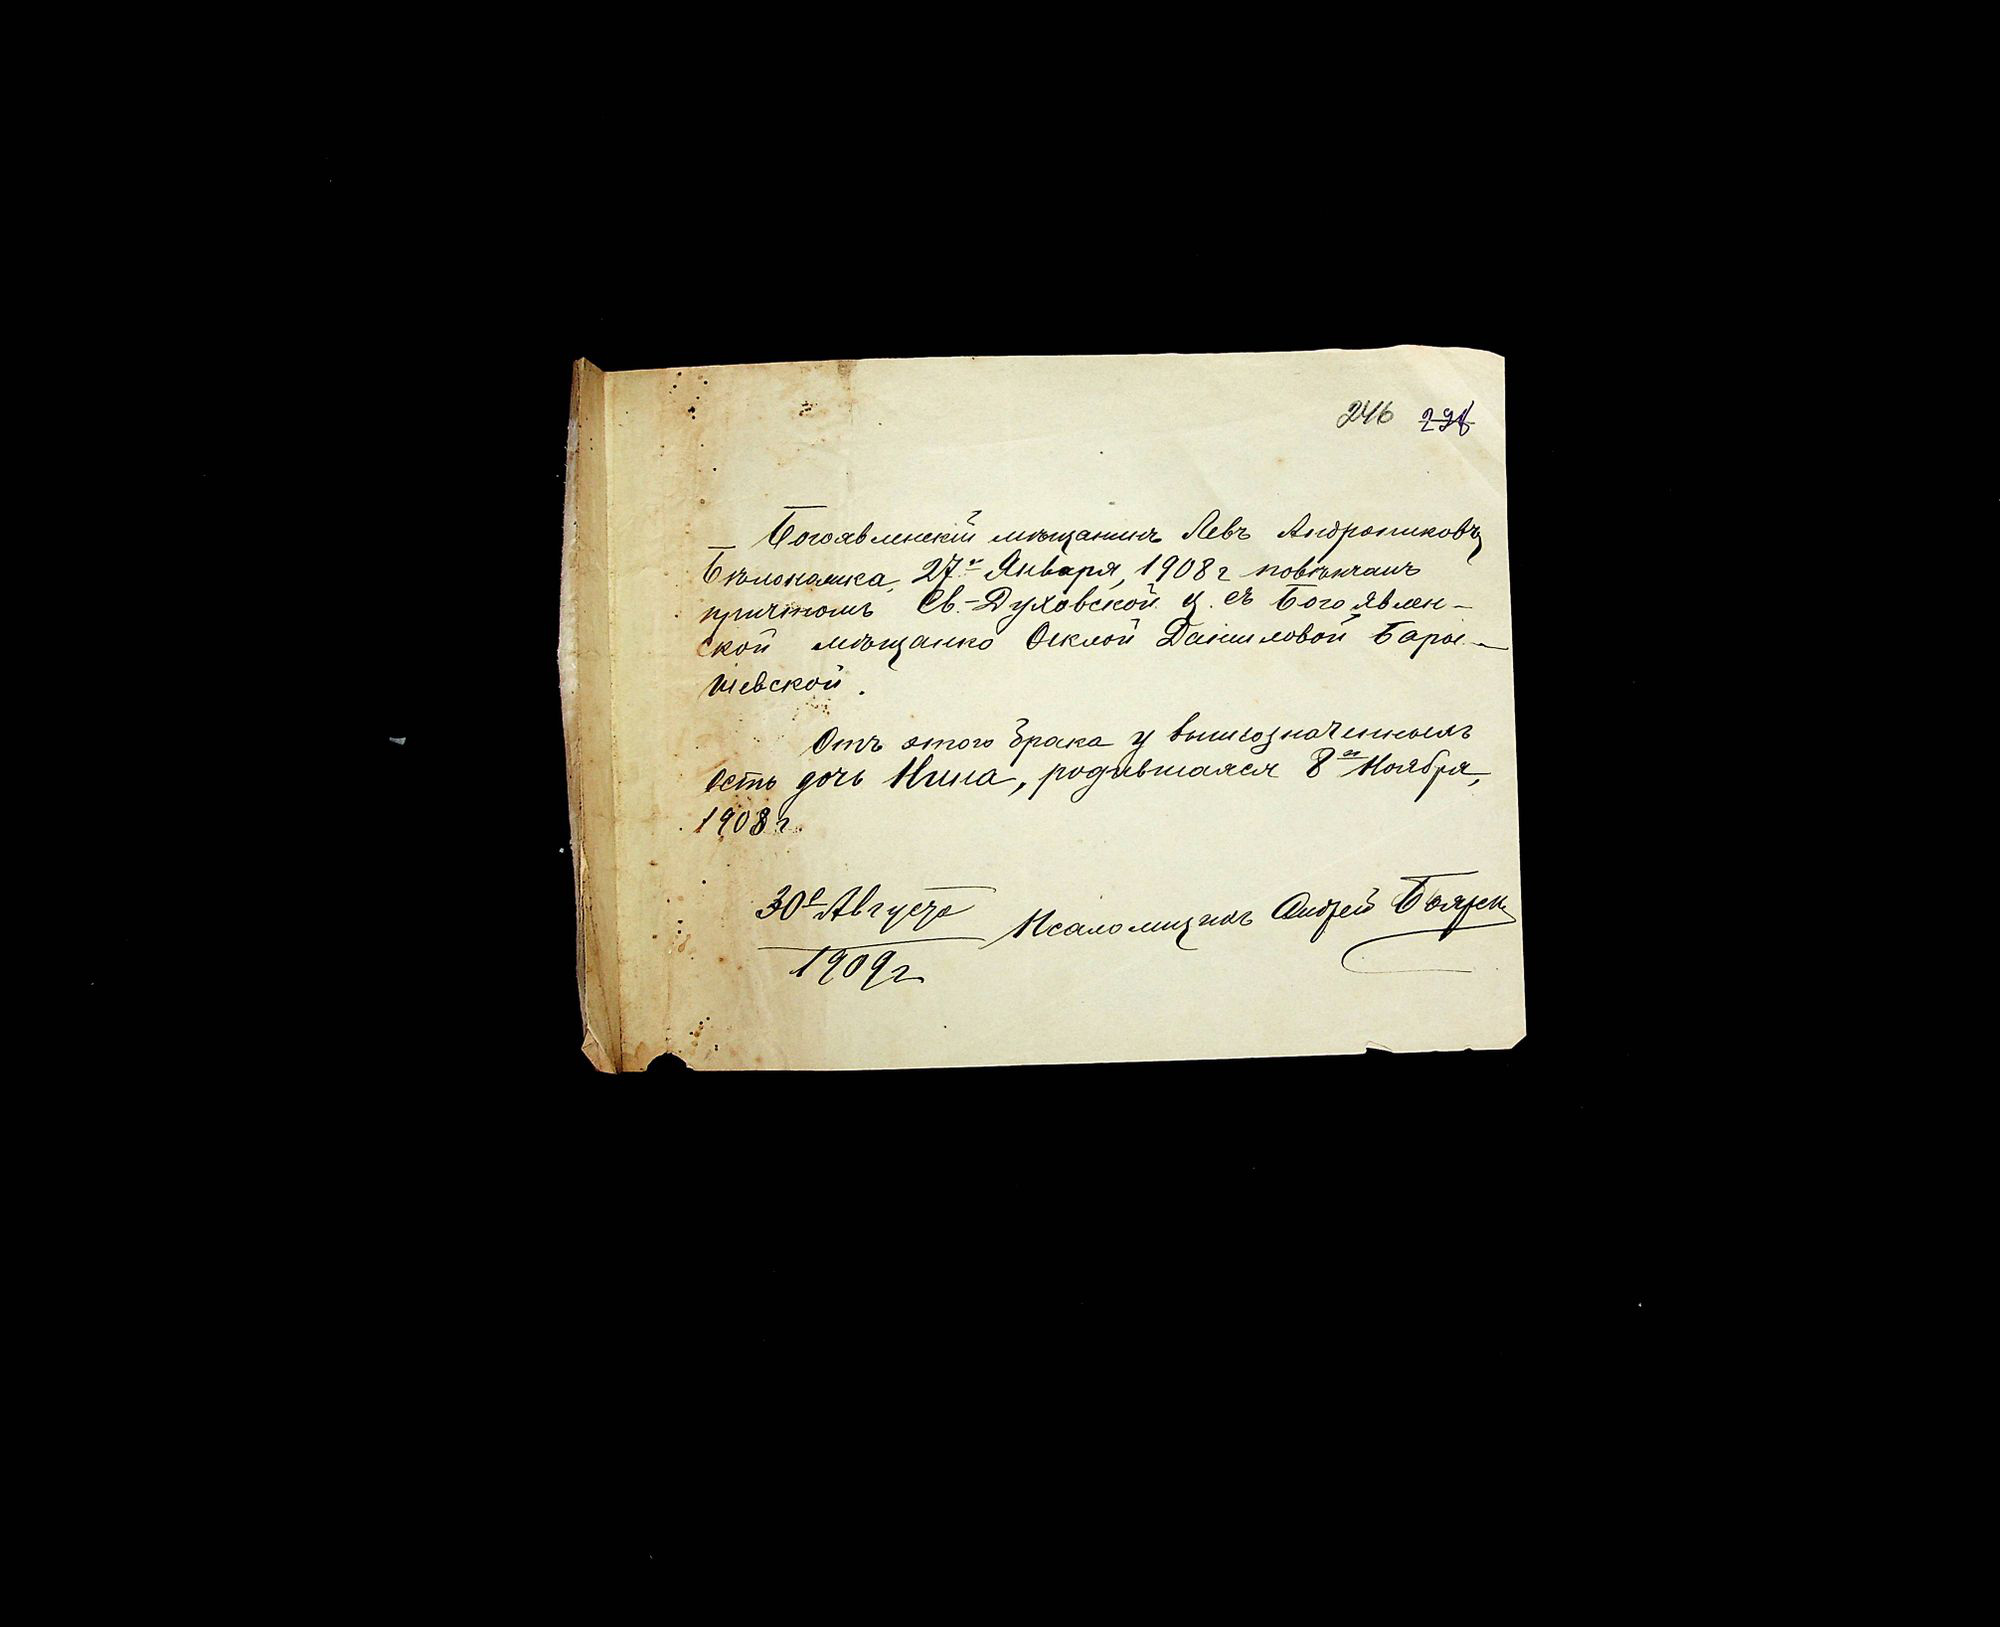 246 298
Богоявленскій мѣщанинъ Левъ Андрониковъ
Бѣлокалика, 27го Января, 1908 г повѣнчанъ
причтомъ Св.-Духовской ц. съ Богоявлен-
ской мѣщанко Феклой Даниловой Бары-
шевской.
Отъ этого брака у вышеозначенныхъ
есть дочь Нина, родившаяся 8го Ноября,
1908 г.
30е Августа
1909 г
Псаломщикъ Андрей